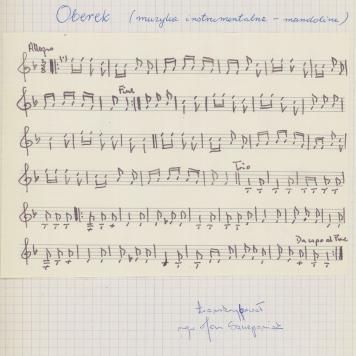 Oberek (muzyka instrumentalna - mandolina)
Allegro
Fine
Trio
Da capo al Fine
transkrybował
mgr Jan